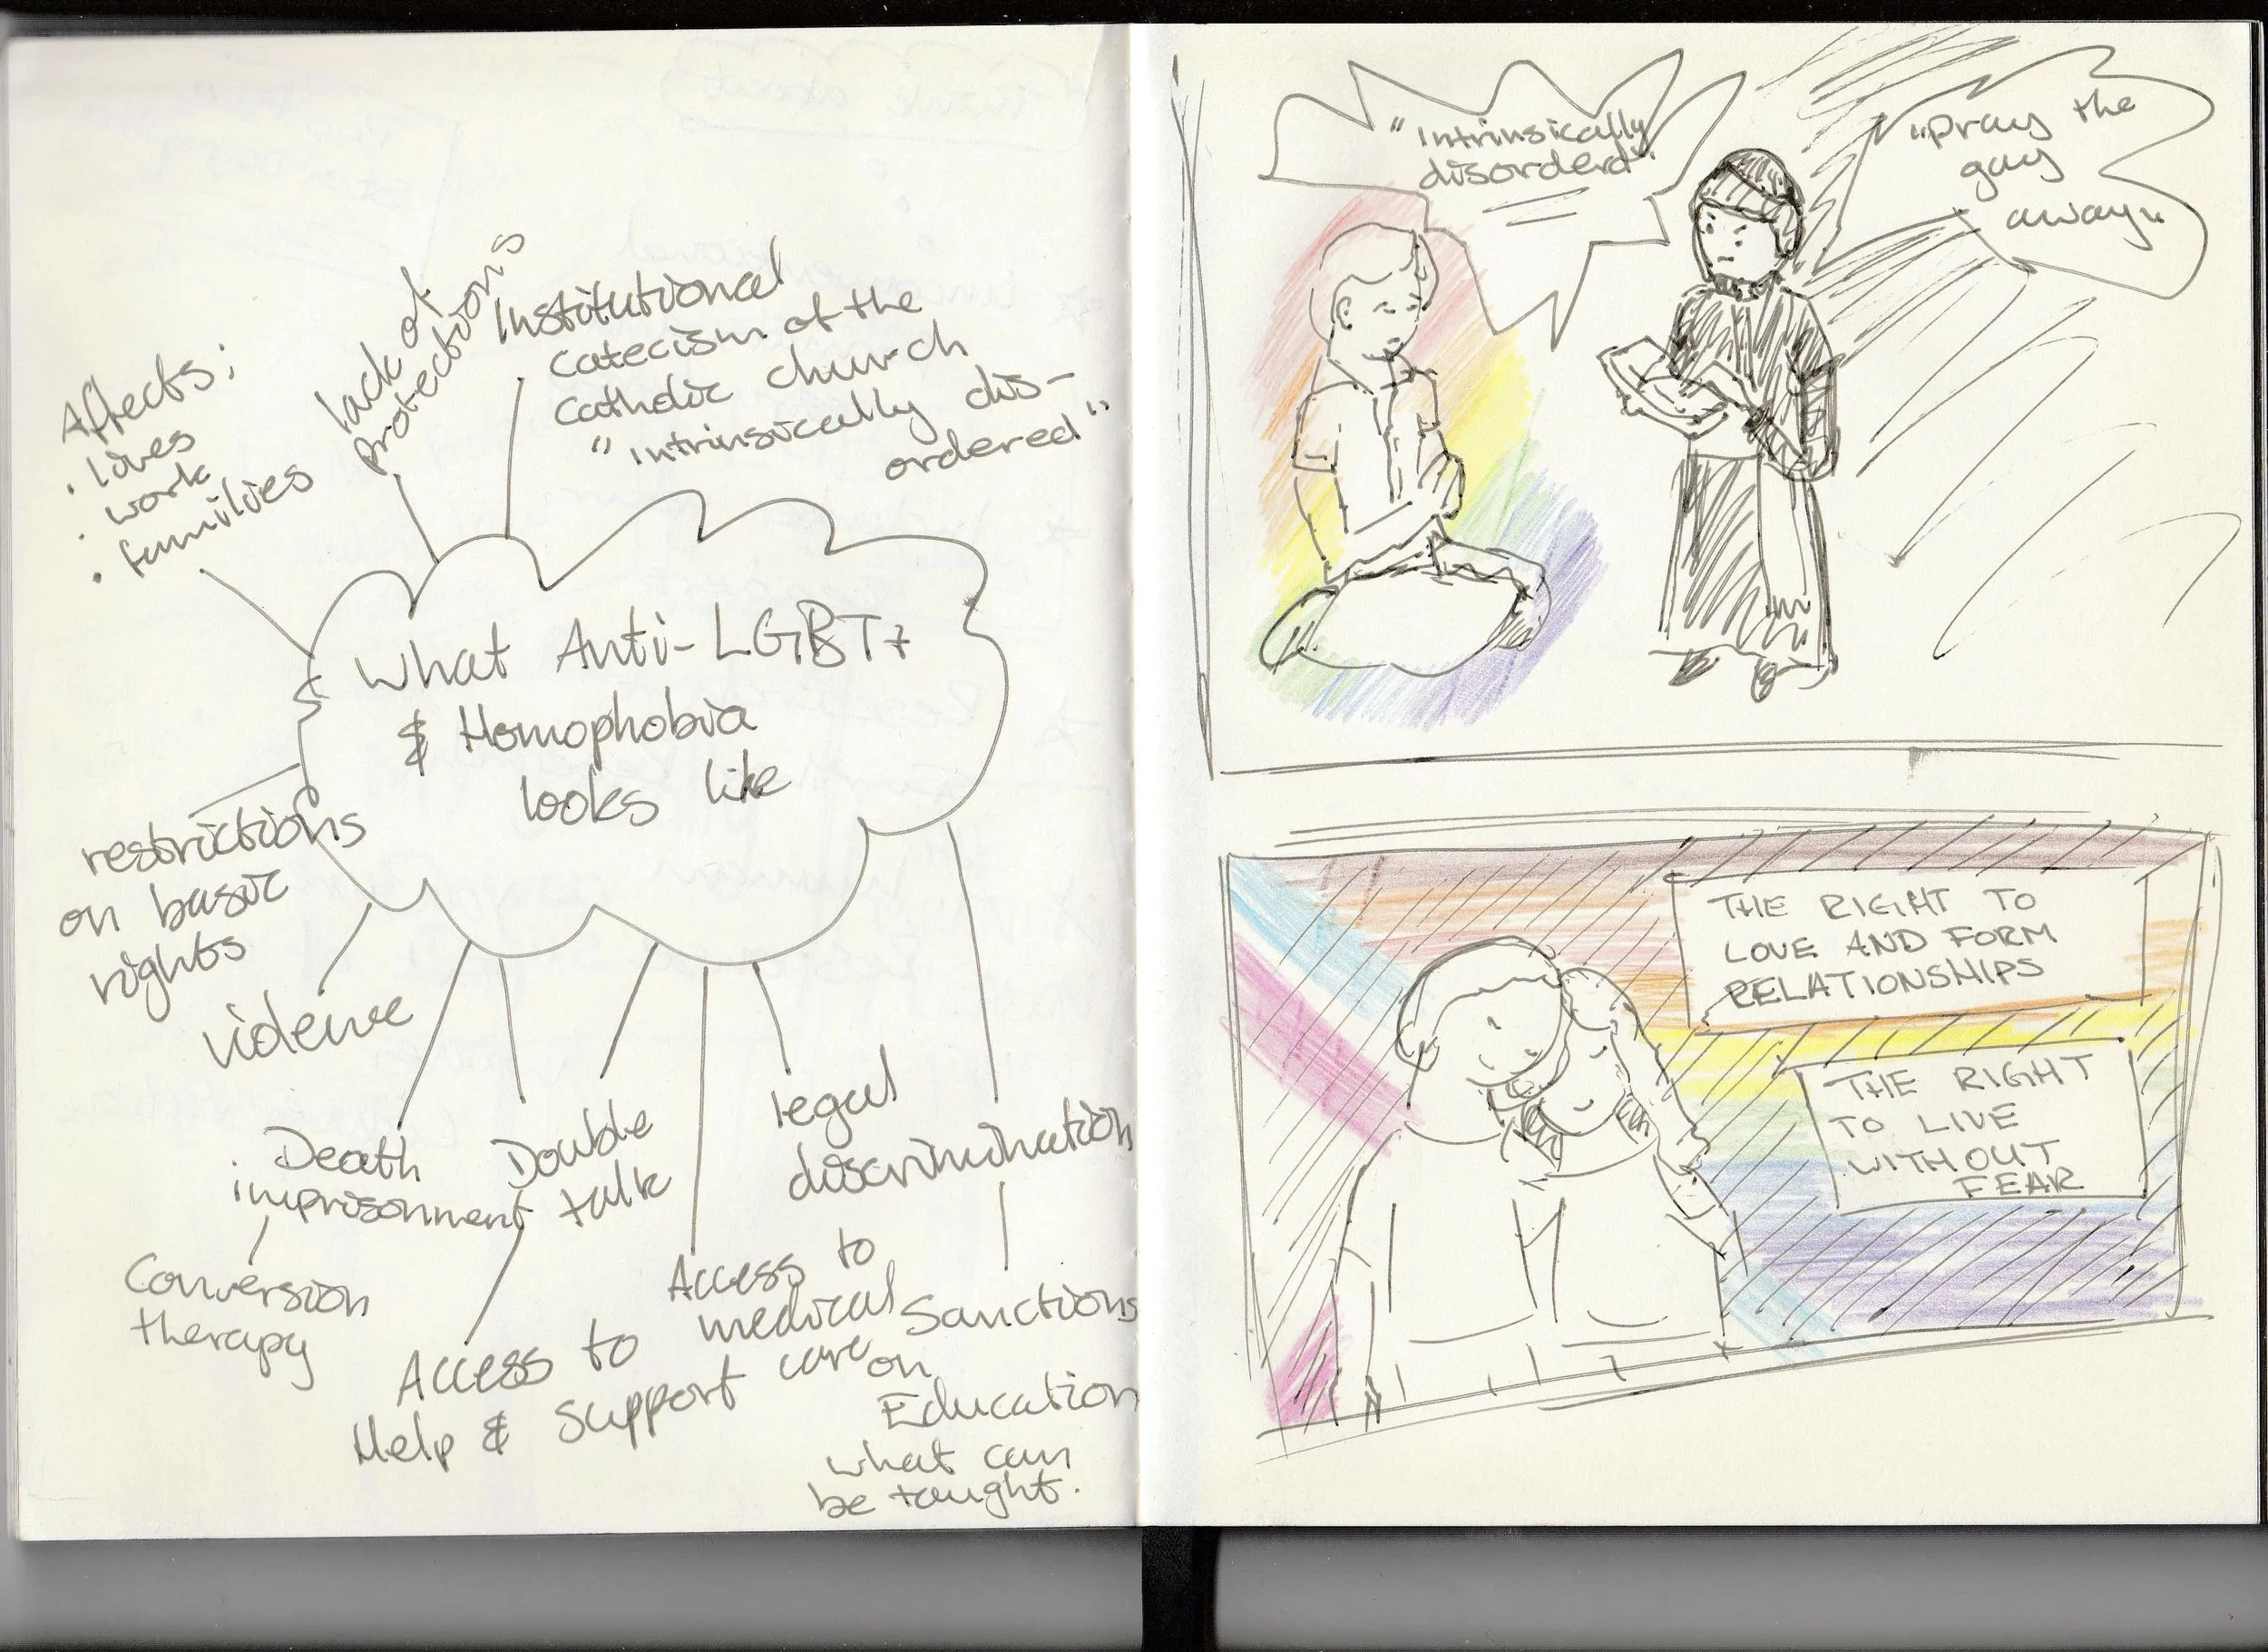 Affects:
. Lives
. work
. families
lack of
protections
Institutional
catecism of the
catholic church
"intrinsically dis-
ordered"
What Anti-LGBT+
& Homophobia
looks like
restrictions
on basic
rights
violence
Death
imprisonment
Conversion
therapy
Double
talk
Access to
Help & Support
Access to
medical
care
legal
discrimination
Sanctions
on
Education
what can
be taught.
"Intrinsically
disorderd"
"pray the
gay
away"
THE RIGHT TO
LOVE AND FORM
RELATIONSHIPS
THE RIGHT
TO LIVE
WITHOUT
FEAR